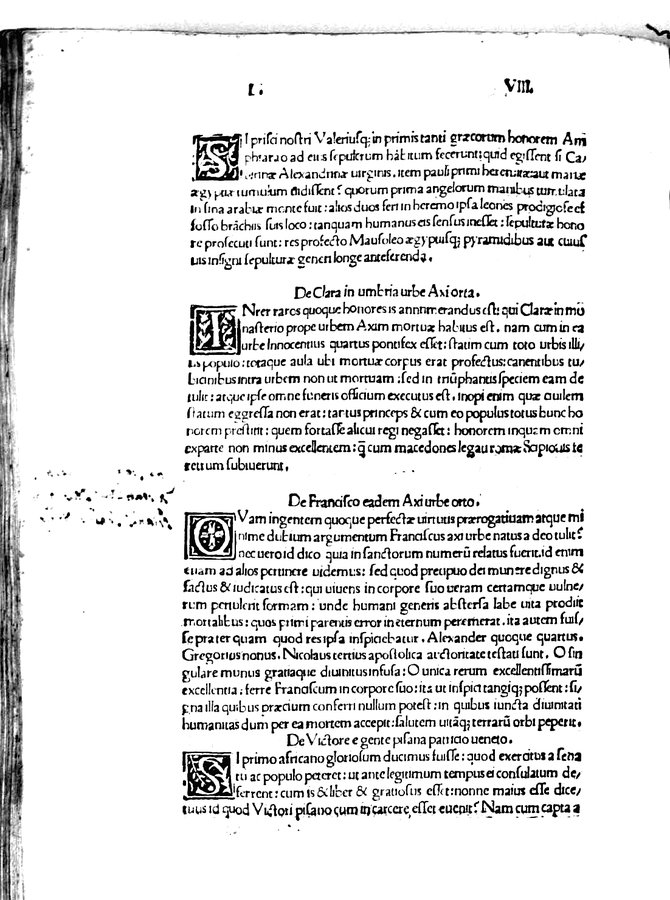 L. VIII.
SI prisci nostri Valeriusq; in primis tanti græcorum honorem Am
phiarao ad eius sepulcrum habitum fecerunt: quid egissent si Ca/
terinæ Alexandrinæ uirginis, item pauli primi heremitæ: aut mariæ
ægyptiæ tumulum uidissent? quorum prima angelorum manibus tumulata
in sina arabiæ monte fuit: alios duos feri in heremo ipsa leones prodigiose ef
fosso brachiis suis loco: tanquam humanus eis sensus inesset: sepulturæ hono
re prosecuti sunt: res profecto Mausoleo ægyptiisq; pyramidibus aut cuius
uis insigni sepulturæ generi longe anteferenda.
De Clara in umbria urbe Axi orta.
INter raros quoque honores is annumerandus est: qui Claræ in mo
nasterio prope urbem Axim mortuæ habitus est. nam cum in ea
urbe Innocentius quartus pontifex esset: statim cum toto urbis illi/
us populo: totaque aula ubi mortuæ corpus erat profectus: canentibus tu/
bicinibus intra urbem non ut mortuam: sed in triūphantis speciem eam de
tulit: atque ipse omne funeris officium executus est. inopi enim quæ ciuilem
statum egressa non erat: tantus princeps & cum eo populus totus hunc ho
norem prestitit: quem fortasse alicui regi negasset: honorem inquam omni
ex parte non minus excellentem: q̄ cum macedones legati romæ Scipionis fe
retrum subiuerunt.
De Francisco eadem Axi urbe orto.
QVam ingentem quoque perfectæ uirtutis prærogatiuam atque mi
nime dubium argumentum Franciscus axi urbe natus a deo tulit?
nec uero id dico quia in sanctorum numerū relatus fuerit. id enim
etiam ad alios pertinere uidemus: sed quod precipuo dei munere dignus &
factus & iudicatus est: qui uiuens in corpore suo ueram certamque uulne/
rum pertulerit formam: unde humani generis abstersa labe uita prodiit
mortalibus: quos primi parentis error in eternum peremerat. ita autem fuis/
se prater quam quod res ipsa inspiciebatur. Alexander quoque quartus.
Gregorius nonus. Nicolaus tertius apostolica auctoritate testati sunt. O sin
gulare munus gratiaque diuinitus infusa: O unica rerum excellentissimarū
excellentia: ferre Franciscum in corpore suo: ita ut inspici tangiq; possent: si/
gna illa quibus præcium conferri nullum potest: in quibus iuncta diuinitati
humanitas dum per ea mortem accepit: salutem uitāq; terrarū orbi peperit.
De Victore e gente pisana patricio ueneto.
SI primo africano gloriosum ducimus fuisse: quod exercitus a sena
tu ac populo peteret: ut ante legitimum tempus ei consulatum de/
ferrent: cum is & liber & gratiosus esset: nonne maius esse dice/
mus id quod Victori pisano cum in carcere esset euenit? Nam cum capta a